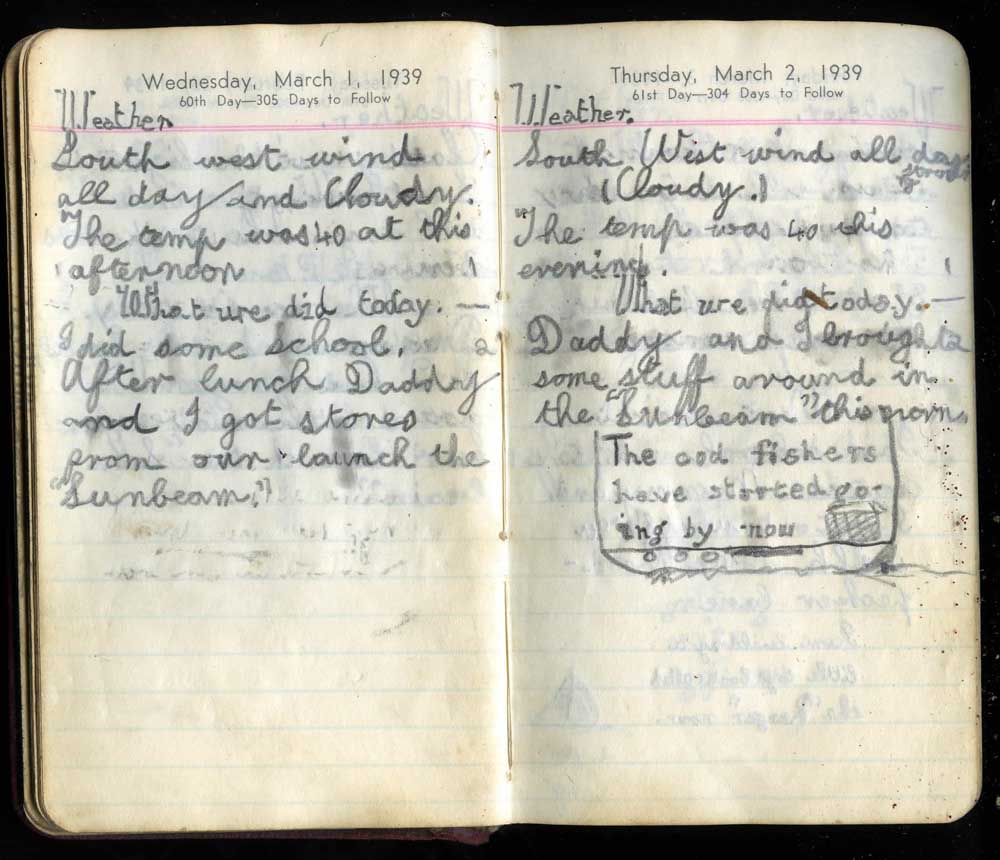 Wednesday, March 1, 1939
60th Day—305 Days to Follow
Weather
South west wind
all day and Cloudy.
The temp was 40 at this
afternoon 1
What we did today. —
I did some school. 2
After lunch Daddy
and I got stores
from our launch the
"Sunbeam."
Thursday, March 2, 1939
61st Day—304 Days to Follow
Weather.
South West wind all day
strong
(Cloudy.)
The temp was 40 this
evening. 1
What we did today. —
Daddy and I brought 2
some stuff around in
the "Sunbeam" this morn.
The cod fishers
have started go-
ing by now